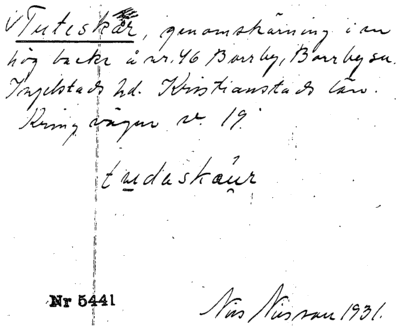 √Tuteskär, genomskärning i en
hög backe å nr. 46 Borrby, Borrby sn.
Ingelstads hd. Kristianstads län.
Kring vägen v. 19.
tudaskäur
Nr 5441
Nils Nilsson 1931.